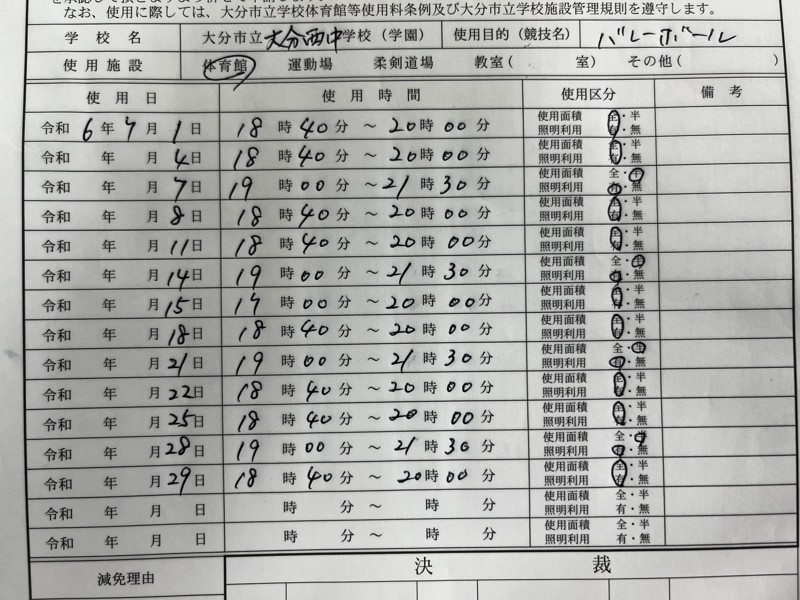 なお、使用に際しては、大分市立学校体育館等使用料条例及び大分市立学校施設管理規則を遵守します。
学校名 大分市立 大分西中 学校（学園） 使用目的（競技名） バレーボール
使用施設 体育館 運動場 柔剣道場 教室（ 室） その他（ ）
使用日 使用時間 使用区分 備考
令和 6年 7月 1日 18時 40分 ～ 20時 00分 使用面積 全・半
照明利用 有・無
令和 年 月 4日 18時 40分 ～ 20時 00分 使用面積 全・半
照明利用 有・無
令和 年 月 7日 19時 00分 ～ 21時 30分 使用面積 全・半
照明利用 有・無
令和 年 月 8日 18時 40分 ～ 20時 00分 使用面積 全・半
照明利用 有・無
令和 年 月 11日 18時 40分 ～ 20時 00分 使用面積 全・半
照明利用 有・無
令和 年 月 14日 19時 00分 ～ 21時 30分 使用面積 全・半
照明利用 有・無
令和 年 月 15日 17時 00分 ～ 20時 00分 使用面積 全・半
照明利用 有・無
令和 年 月 18日 18時 40分 ～ 20時 00分 使用面積 全・半
照明利用 有・無
令和 年 月 21日 19時 00分 ～ 21時 30分 使用面積 全・半
照明利用 有・無
令和 年 月 22日 18時 40分 ～ 20時 00分 使用面積 全・半
照明利用 有・無
令和 年 月 25日 18時 40分 ～ 20時 00分 使用面積 全・半
照明利用 有・無
令和 年 月 28日 19時 00分 ～ 21時 30分 使用面積 全・半
照明利用 有・無
令和 年 月 29日 18時 40分 ～ 20時 00分 使用面積 全・半
照明利用 有・無
令和 年 月 日 時 分 ～ 時 分 使用面積 全・半
照明利用 有・無
令和 年 月 日 時 分 ～ 時 分 使用面積 全・半
照明利用 有・無
減免理由 決裁